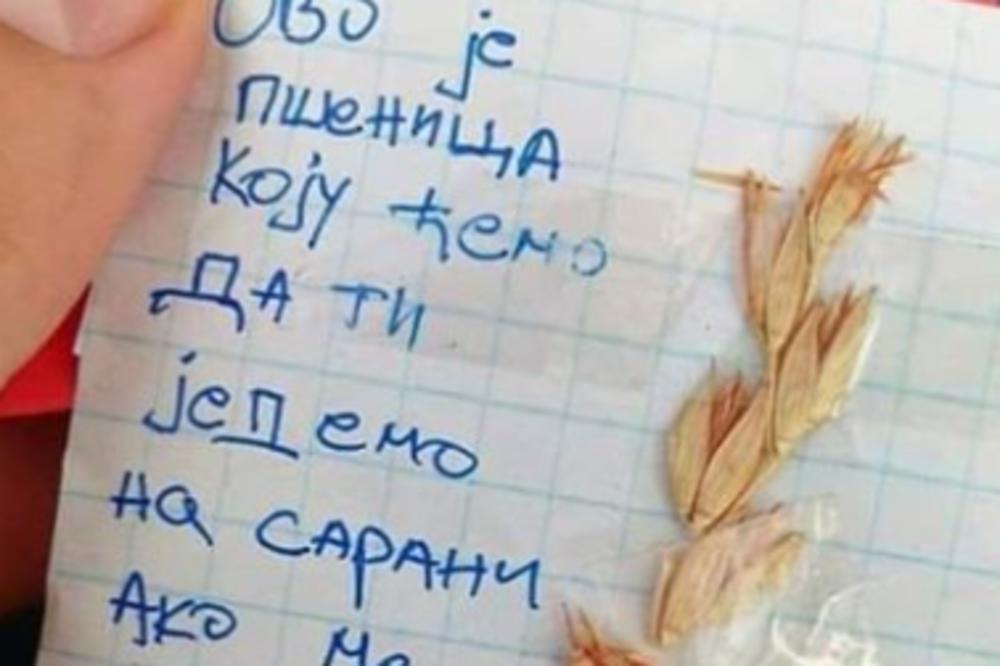 Ово је
пшеница
коју ћемо
да ти
једемо
на сарани
Ако